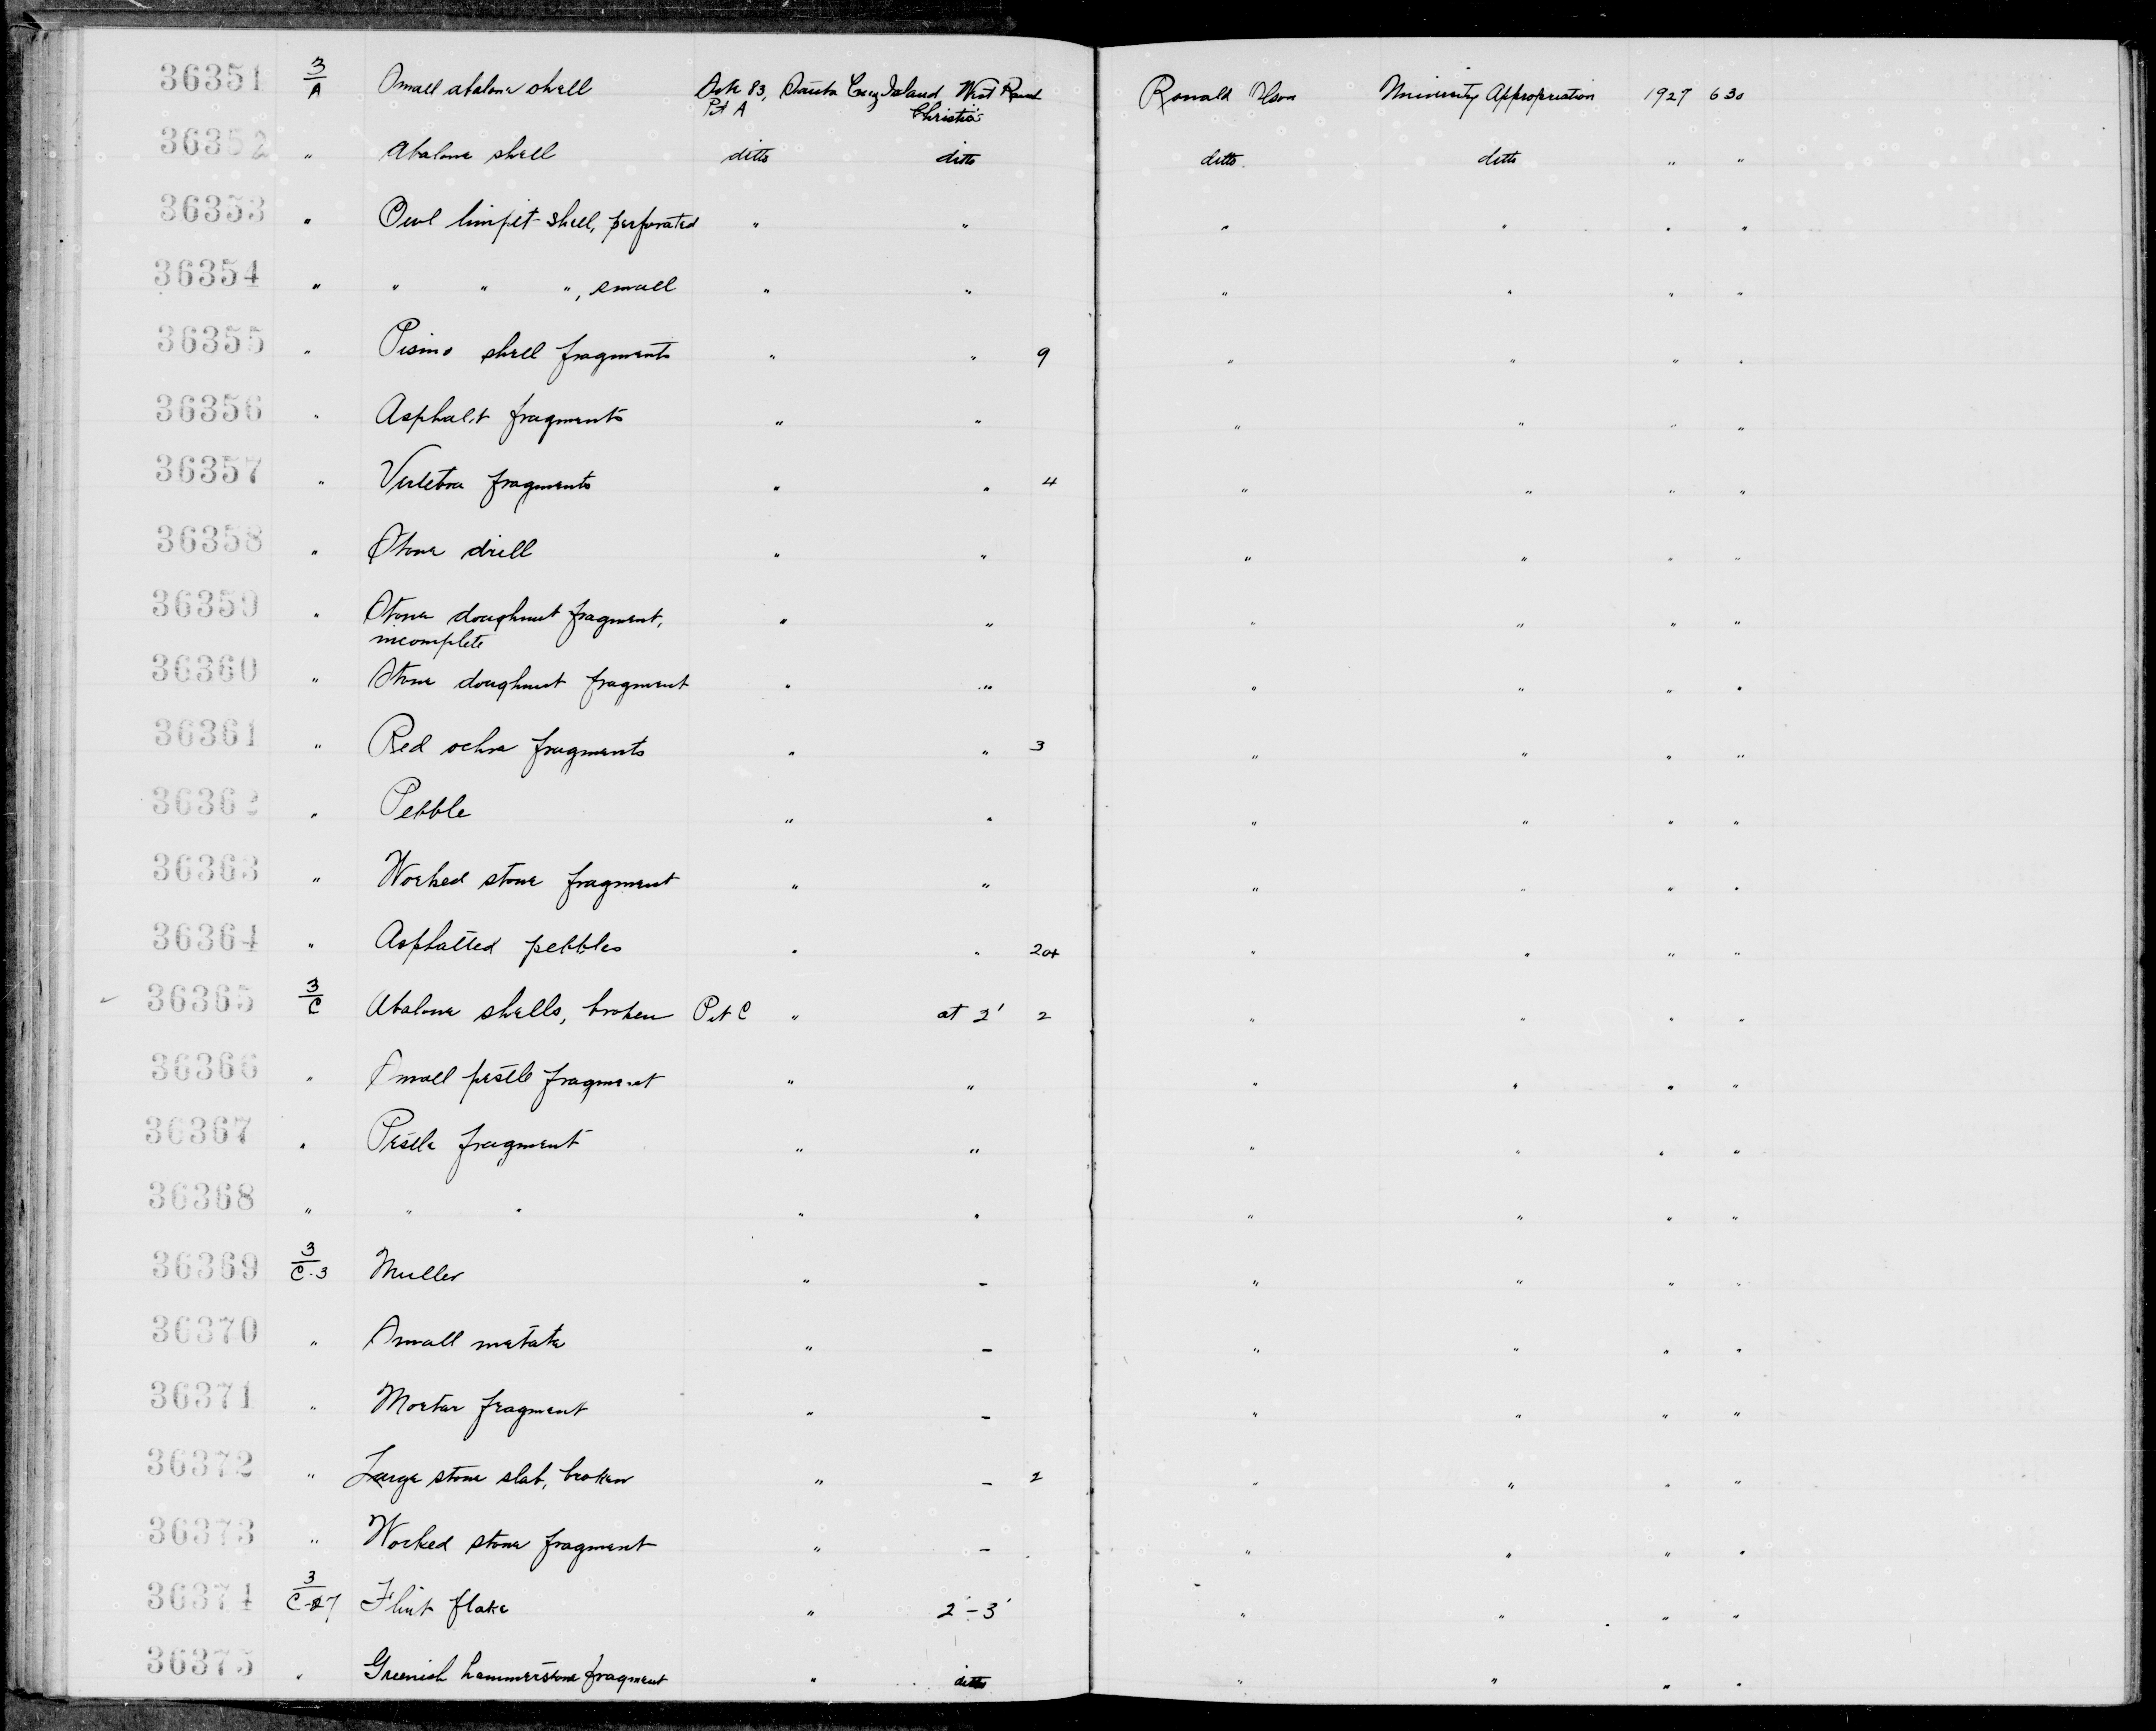 36351 3/A Small abalone shell Site 83, Santa Cruz Island West Ranch Ronald Olson University Appropriation 1927 630
Pit A Christie
36352 " Abalone shell ditto ditto ditto ditto " "
36353 " Owl limpit shell, perforated " " " " " "
36354 " " " ", small " " " " " "
36355 " Pismo shell fragments " " 9 " " " "
36356 " Asphalt fragments " " " " " "
36357 " Vertebra fragments " " 4 " " " "
36358 " Stone drill " " " " " "
36359 " Stone doughnut fragment, " " " " " "
incomplete
36360 " Stone doughnut fragment " " " " " "
36361 " Red ochre fragments " " 3 " " " "
36362 " Pebble " " " " " "
36363 " Worked stone fragment " " " " " "
36364 " Asphalted pebbles " " 20+ " " " "
36365 3/C Abalone shells, broken Pit C " at 2' 2 " " " "
36366 " Small pestle fragment " " " " " "
36367 " Pestle fragment " " " " " "
36368 " " " " " " " " "
36369 3/C-3 Muller " - " " " "
36370 " Small metate " - " " " "
36371 " Mortar fragment " - " " " "
36372 " Large stone slab, broken " - 2 " " " "
36373 " Worked stone fragment " - " " " "
36374 3/C-27 Flint flake " 2'-3' " " " "
36375 " Greenish hammerstone fragment " ditto " " " "